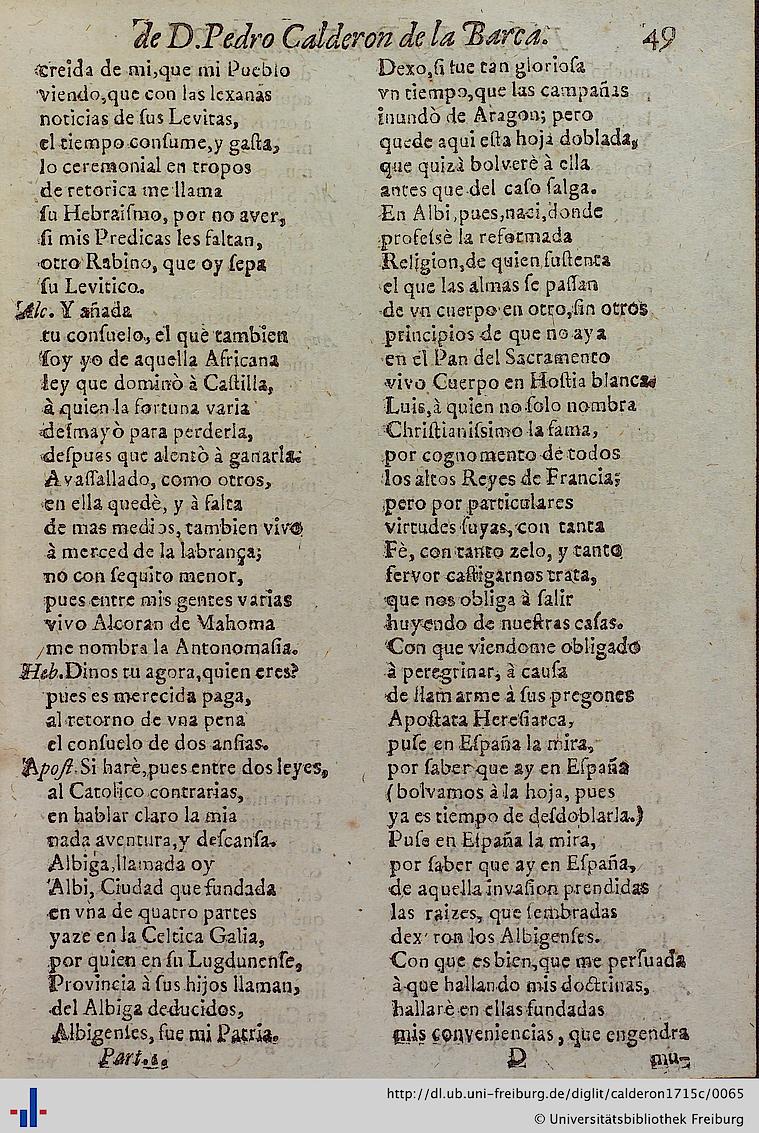 de D. Pedro Calderon de la Barca. 49
creida de mi, que mi Pueblo
viendo, que con las lexanas
noticias de ſus Levitas,
el tiempo conſume, y gaſta,
lo ceremonial en tropos
de retorica me llama
ſu Hebraiſmo, por no aver,
ſi mis Predicas les faltan,
otro Rabino, que oy ſepa
ſu Levitico.
Alc. Y añada
tu conſuelo, el que tambien
ſoy yo de aquella Africana
ley que dominò à Caſtilla,
à quien la fortuna varia
deſmayò para perderla,
deſpues que alentò à ganarla:
Avaſſallado, como otros,
en ella quedè, y à falta
de mas medios, tambien vivo
à merced de la labrança;
no con ſequito menor,
pues entre mis gentes varias
vivo Alcoran de Mahoma
me nombra la Antonomaſia.
Heb. Dinos tu agora, quien eres?
pues es merecida paga,
al retorno de vna pena
el conſuelo de dos anſias.
Apoſt. Si harè, pues entre dos leyes,
al Catolico contrarias,
en hablar claro la mia
nada aventura, y deſcanſa.
Albiga, llamada oy
Albi, Ciudad que fundada
en vna de quatro partes
yaze en la Celtica Galia,
por quien en ſu Lugdunenſe,
Provincia à ſus hijos llaman,
del Albiga deducidos,
Albigenſes, fue mi Patria.
Part. 1.
Dexo, ſi fue tan glorioſa
vn tiempo, que las campañas
inundò de Aragon; pero
quede aqui eſta hoja doblada,
que quizà bolverè à ella
antes que del caſo ſalga.
En Albi, pues, naci, donde
profeſsè la reformada
Religion, de quien ſuſtenta
el que las almas ſe paſſan
de vn cuerpo en otro, ſin otros
principios de que no aya
en el Pan del Sacramento
vivo Cuerpo en Hoſtia blanca.
Luis, à quien no ſolo nombra
Chriſtianiſsimo la fama,
por cognomento de todos
los altos Reyes de Francia;
pero por particulares
virtudes ſuyas, con tanta
Fè, con tanto zelo, y tanto
fervor caſtigarnos trata,
que nos obliga à ſalir
huyendo de nueſtras caſas.
Con que viendome obligado
à peregrinar, à cauſa
de llamarme à ſus pregones
Apoſtata Hereſiarca,
puſe en Eſpaña la mira,
por ſaber que ay en Eſpaña
(bolvamos à la hoja, pues
ya es tiempo de deſdoblarla.)
Puſe en Eſpaña la mira,
por ſaber que ay en Eſpaña,
de aquella invaſion prendidas
las raizes, que ſembradas
dex ron los Albigenſes.
Con que es bien, que me perſuada
à que hallando mis doctrinas,
hallarè en ellas fundadas
mis conveniencias, que engendra
D mu-
http://dl.ub.uni-freiburg.de/diglit/calderon1715c/0065
© Universitätsbibliothek Freiburg